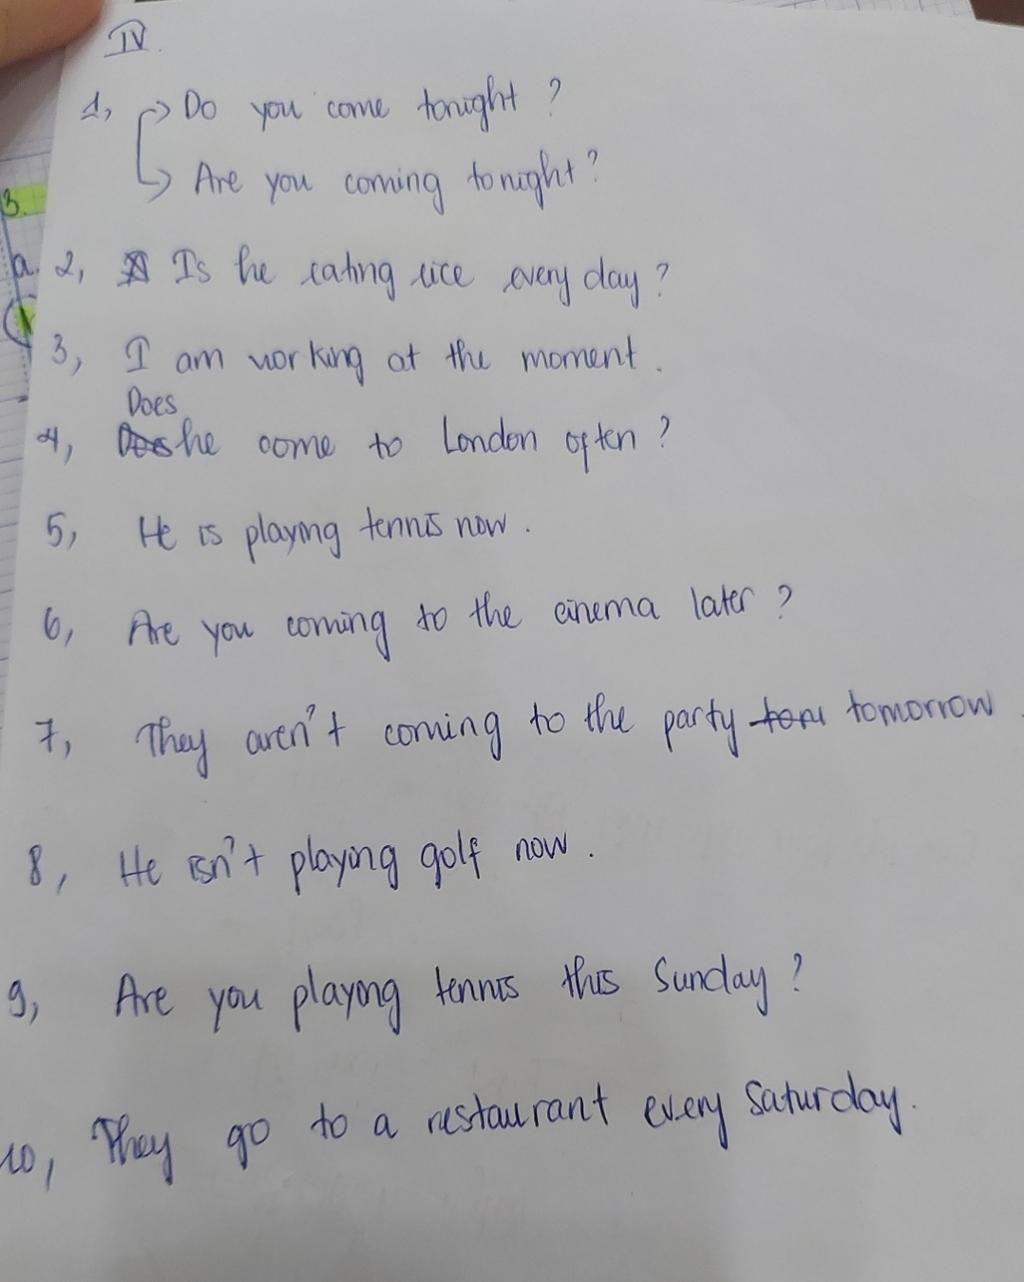 IV.
1, → Do you come tonight ?
→ Are you coming tonight ?
3.
a.
2, Is he eating rice every day ?
3, I am working at the moment .
Does
4, Does he come to London often ?
5, He is playing tennis now .
6, Are you coming to the cinema later ?
7, They aren't coming to the party tom tomorrow .
8, He isn't playing golf now .
9, Are you playing tennis this Sunday ?
10, They go to a restaurant every Saturday .